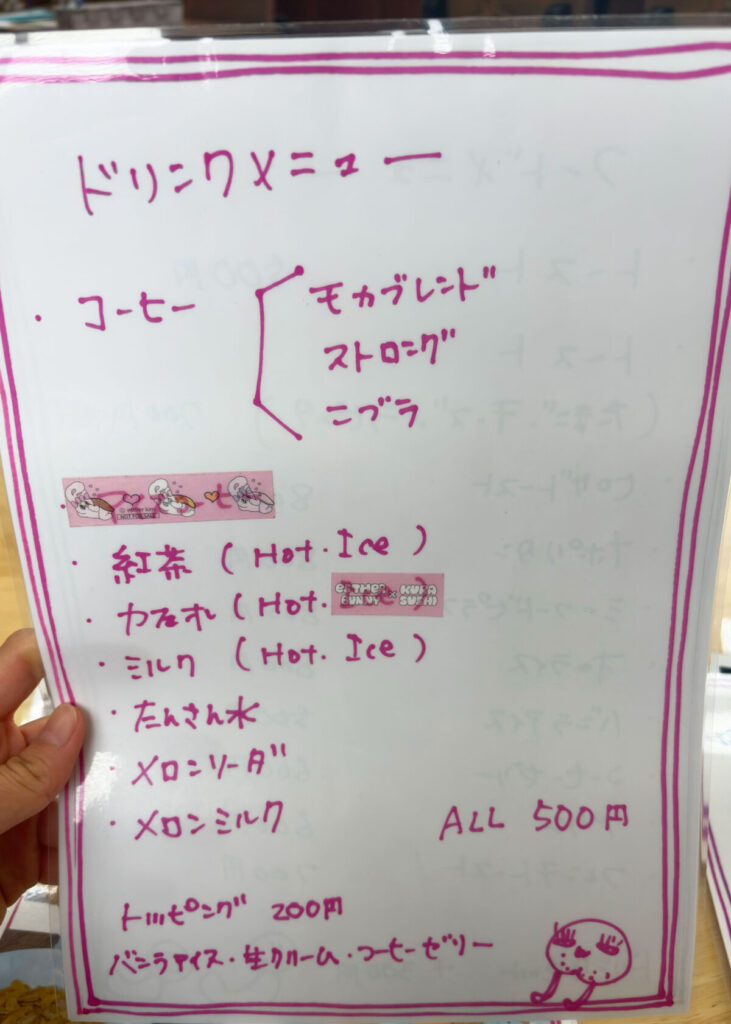 ドリンクメニュー
・コーヒー
モカブレンド
ストロング
ニブラ
© esther bunny
NOT FOR SALE
・紅茶 (Hot・Ice)
・カフェオレ (Hot・
esther bunny × KURA SUSHI
・ミルク (Hot. Ice)
・たんさん水
・メロンソーダ
・メロンミルク
ALL 500円
トッピング 200円
バニラアイス・生クリーム・コーヒーゼリー